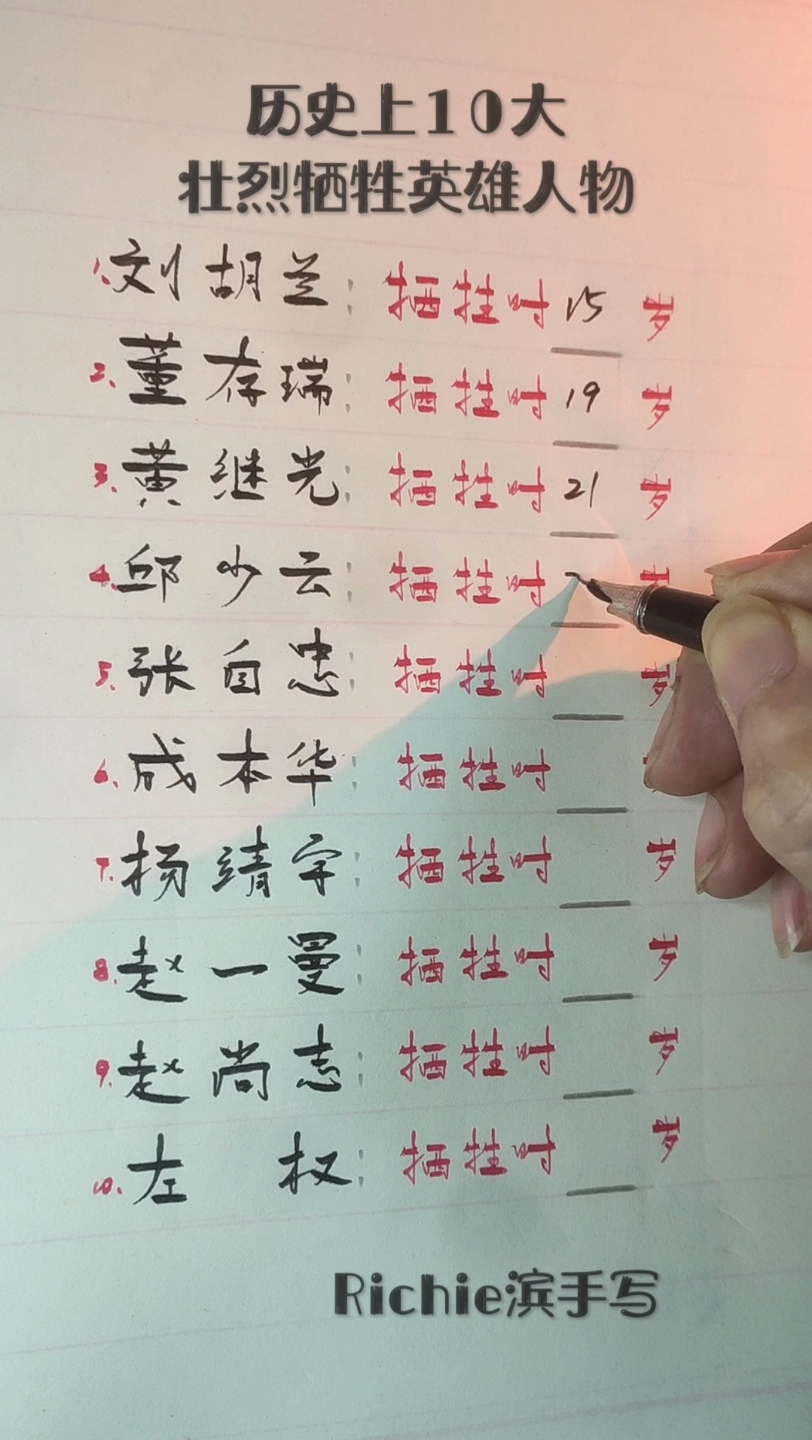 历史上10大
壮烈牺牲英雄人物
1.刘胡兰：牺牲时15岁
2、董存瑞：牺牲时19岁
3、黄继光：牺牲时21岁
4、邱少云：牺牲时岁
5、张自忠：牺牲时岁
6、成本华：牺牲时
7、杨靖宇：牺牲时岁
8、赵一曼：牺牲时岁
9、赵尚志：牺牲时岁
10、左权：牺牲时岁
Richie滨手写